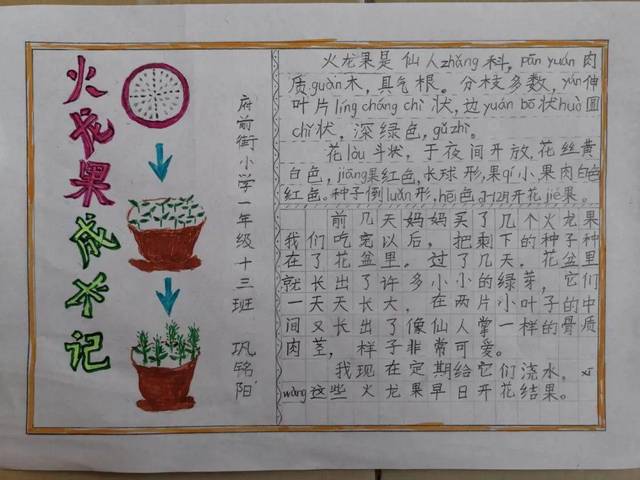 火龙果成长记
府前街小学一年级十三班 巩铭阳
火龙果是仙人zhǎng科，pān yuán肉
质guàn木，具气根。分枝多数，yán伸
叶片líng cháng chǐ状，边yuán bō状huò圆
chǐ状，深绿色，gǔzhì。
花lòu斗状，于夜间开放，花丝黄
白色，jiāng果红色，长球形，果qí小果肉白色
红色。种子倒luǎn形，hēi色，7-12月开花jié果。
前几天妈妈买了几个火龙果
我们吃完以后，把剩下的种子种
在了花盆里。过了几天，花盆里
就长出了许多小小的绿芽，它们
一天天长大，在两片小叶子的中
间又长出了像仙人掌一样的骨质
肉茎，样子非常可爱。
我现在定期给它们浇水，
wàng这些火龙果早日开花结果。